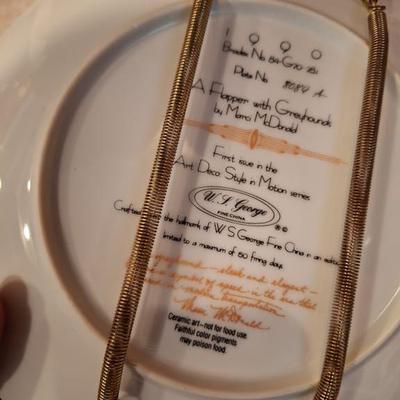 1990
Bradex No. 84-G20-28.1
Plate No. 8084 A
A Flapper with Greyhounds
by Marci McDonald
First issue in the
Art Deco Style in Motion series
W.S. George
FINE CHINA
Crafted the hallmark of W S George Fine China in an
limited to a maximum of 150 firing days
greyhound sleek and elegant
a symbol of speed in the era that
transportation
McDonald
Ceramic art—not for food use
Faithful color pigments
may poison food.